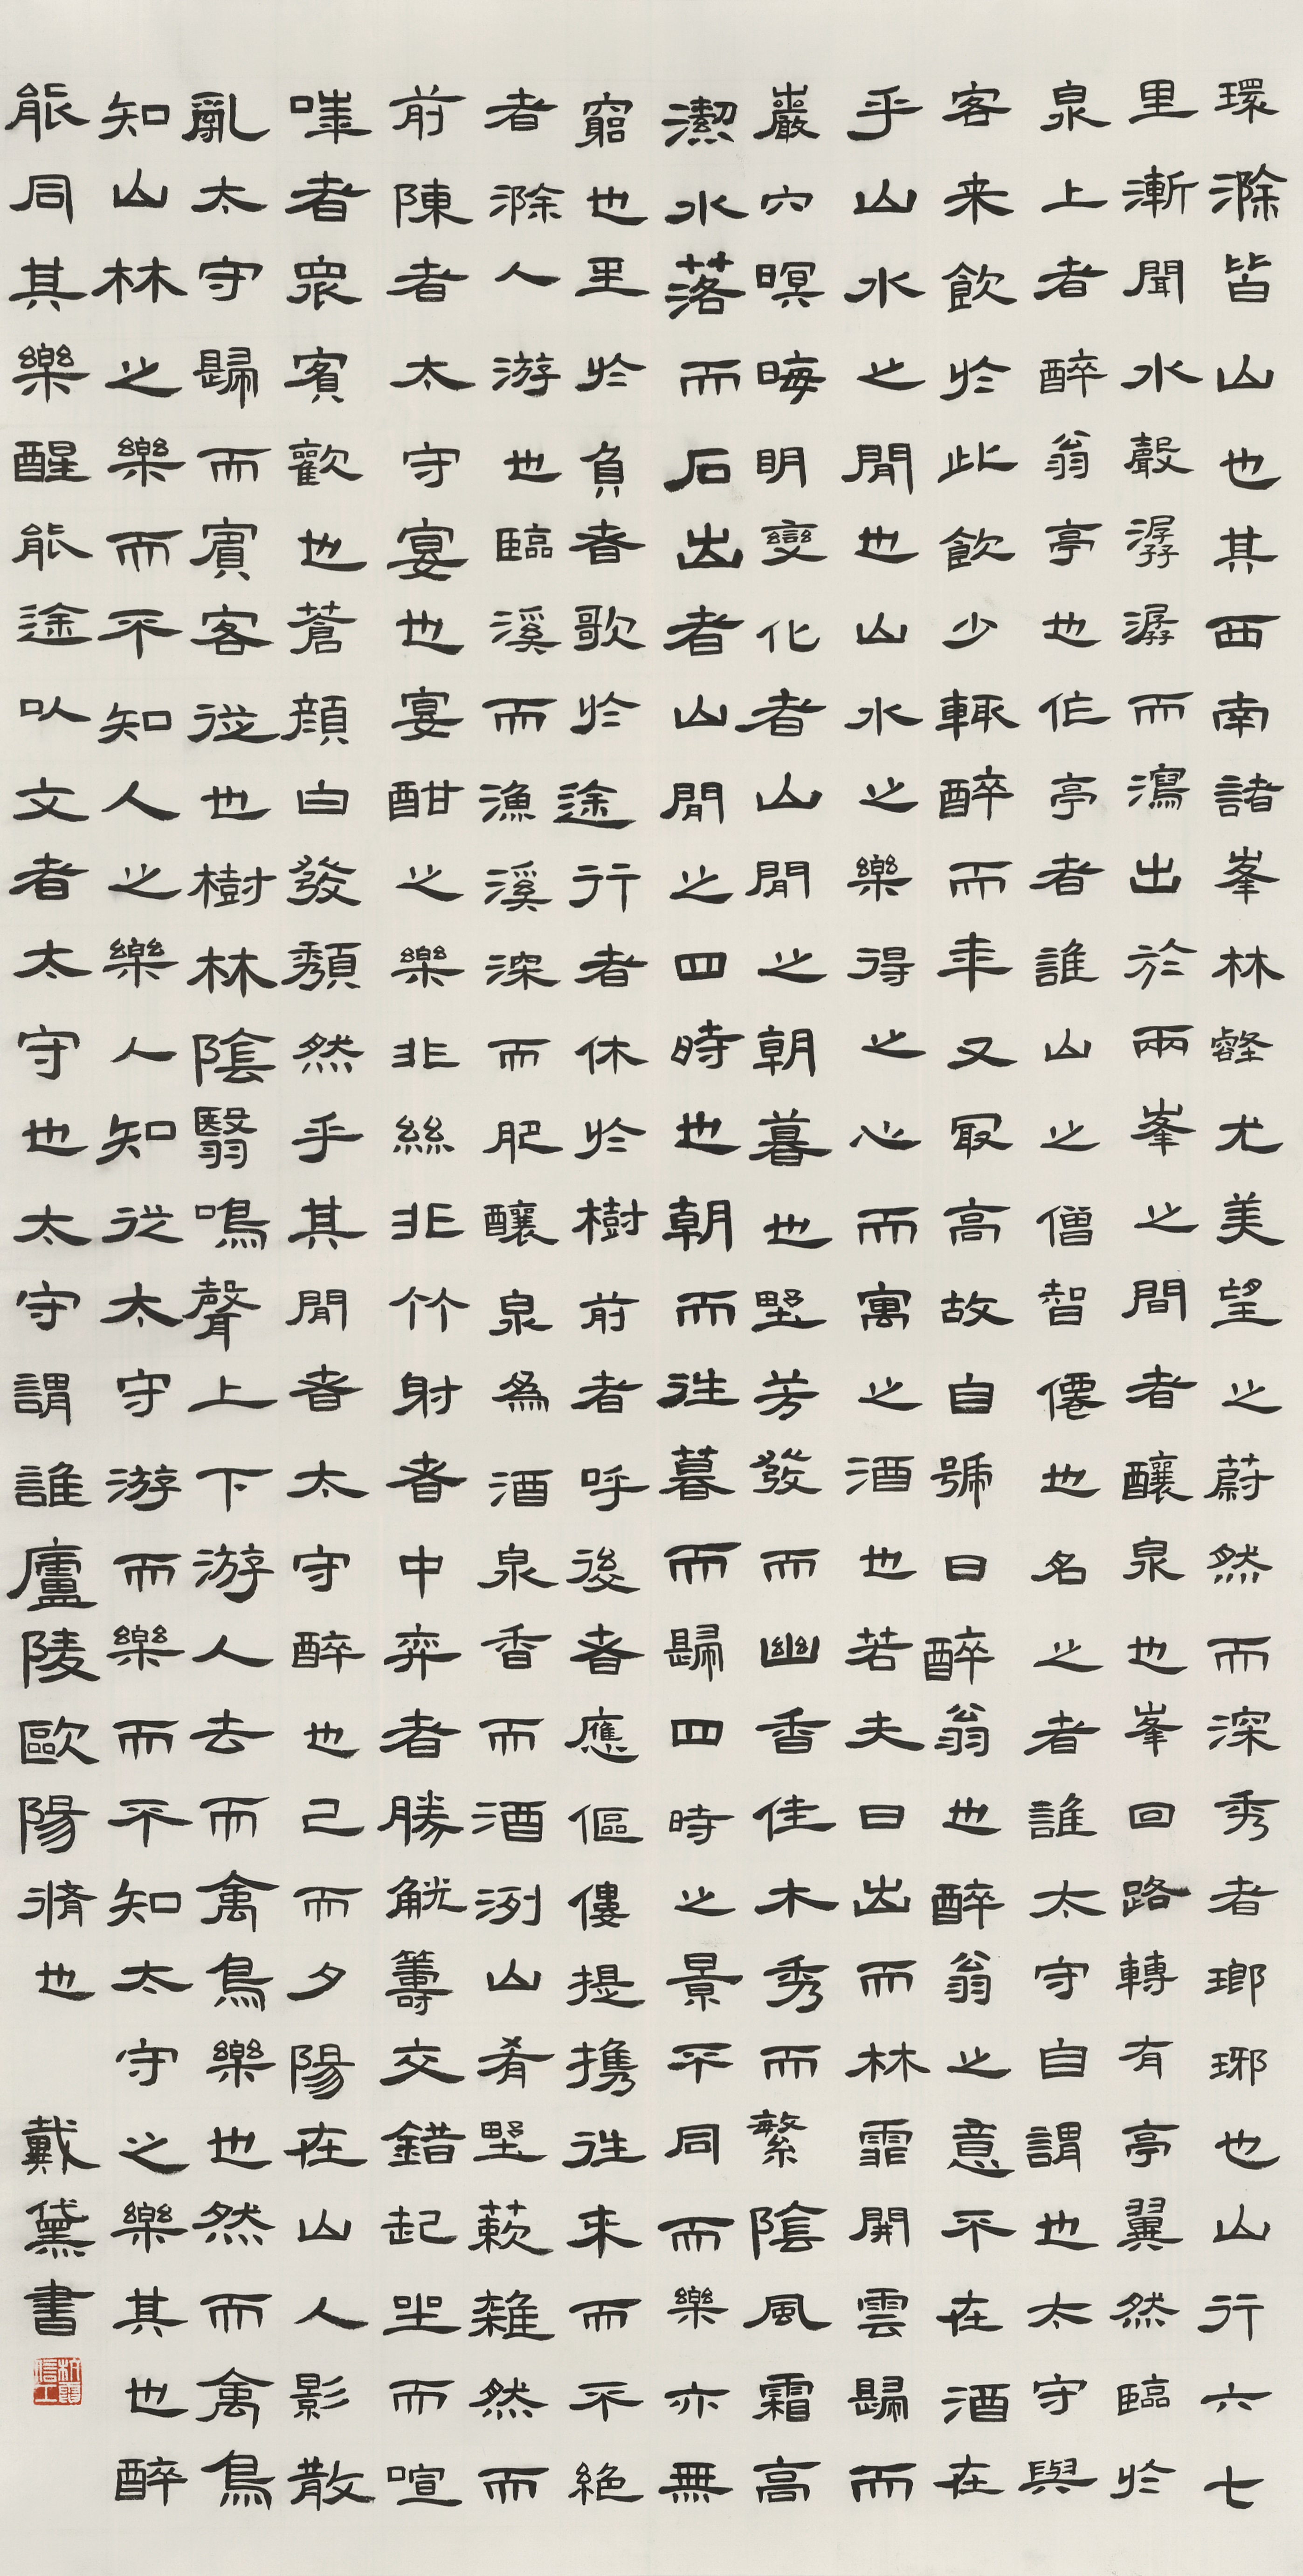 環滁皆山也其西南諸峯林壑尤美望之蔚然而深秀者瑯琊也山行六七
里漸聞水聲潺潺而瀉出於兩峯之間者釀泉也峯回路轉有亭翼然臨於
泉上者醉翁亭也作亭者誰山之僧智僊也名之者誰太守自謂也太守與
客来飲於此飲少輒醉而年又最高故自號曰醉翁也醉翁之意不在酒在
乎山水之閒也山水之樂得之心而寓之酒也若夫日出而林霏開雲歸而
巖穴暝晦明變化者山閒之朝暮也野芳發而幽香佳木秀而繁陰風霜高
潔水落而石出者山閒之四時也朝而往暮而歸四時之景不同而樂亦無
窮也至於負者歌於途行者休於樹前者呼後者應傴僂提携往來而不絕
者滁人游也臨溪而漁溪深而肥釀泉為酒泉香而酒洌山肴野蔌雜然而
前陳者太守宴也宴酣之樂非絲非竹射者中弈者勝觥籌交錯起坐而喧
嘩者眾賓歡也蒼顏白發頹然乎其閒者太守醉也已而夕陽在山人影散
亂太守歸而賓客從也樹林陰翳鳴聲上下游人去而禽鳥樂也然而禽鳥
知山林之樂而不知人之樂人知從太守游而樂而不知太守之樂其也醉
能同其樂醒能途以文者太守也太守謂誰廬陵歐陽脩也 戴黛書